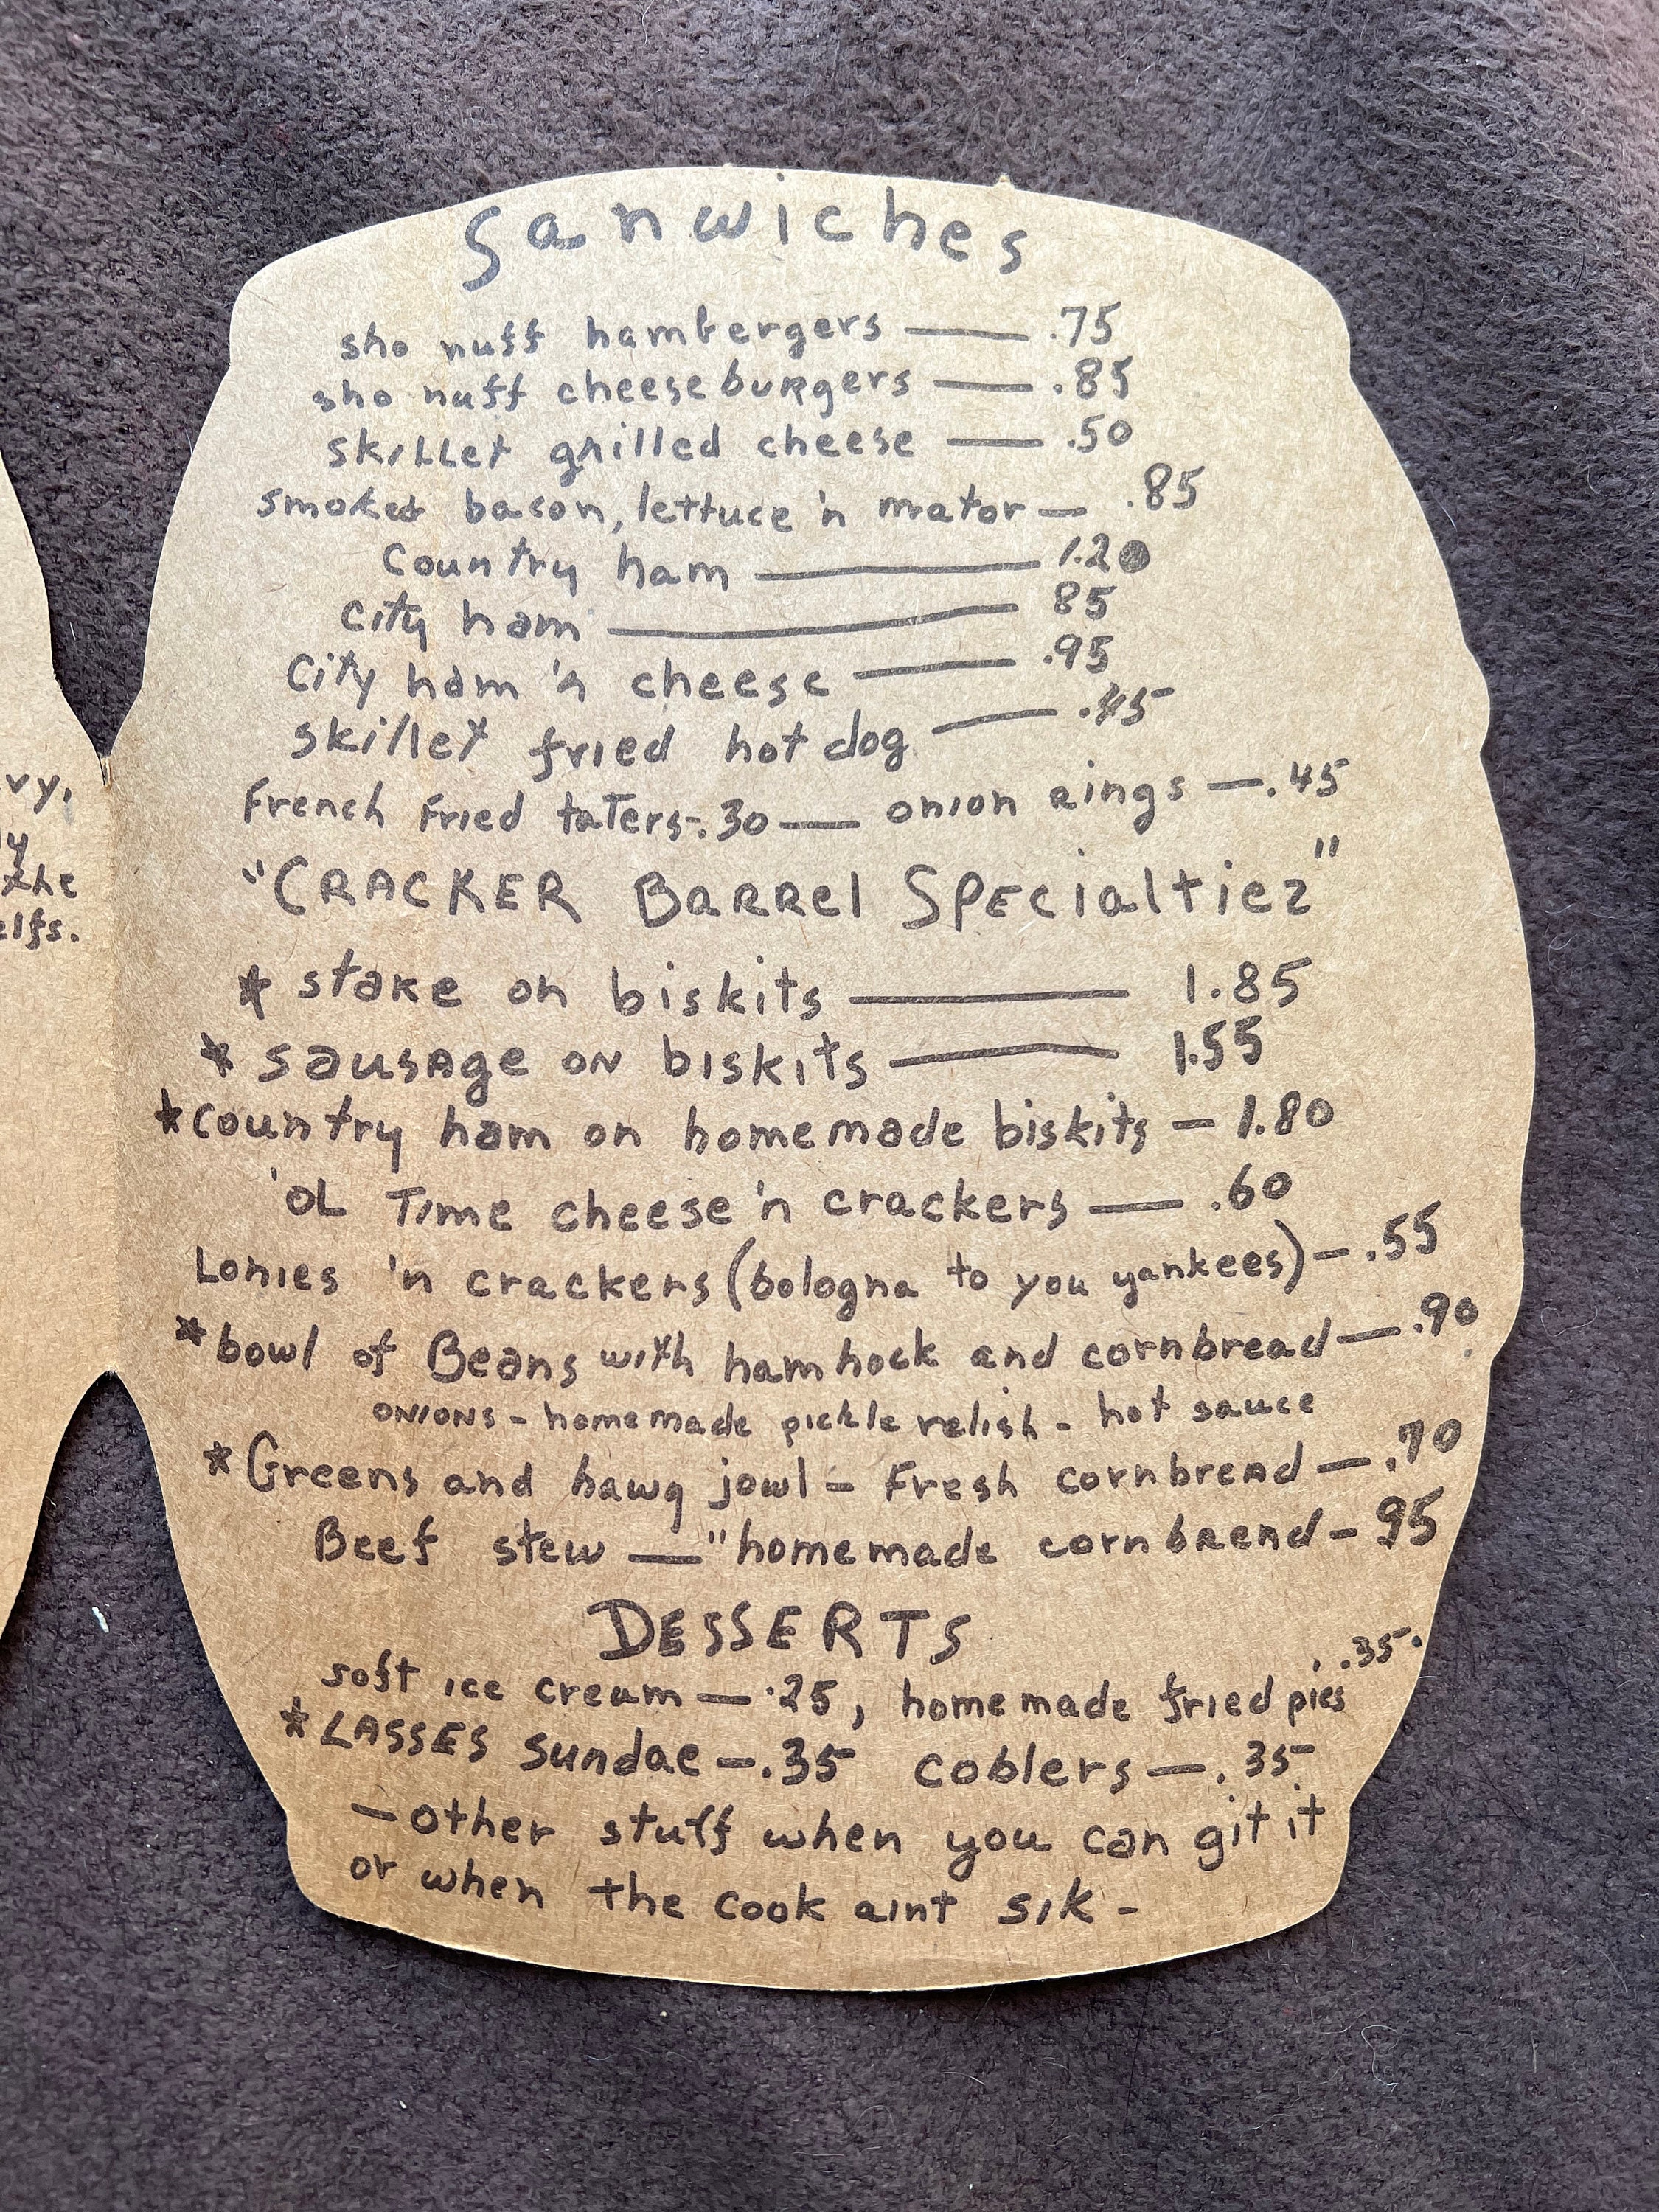 Sanwiches
sho nuff hambergers — .75
sho nuff cheeseburgers — .85
skillet grilled cheese — .50
smoked bacon, lettuce 'n mator — .85
Country ham — 1.20
City ham — 85
City ham 'n cheese — .95
skillet fried hot dog — .45
French Fried taters-.30 — onion rings — .45
"CRACKER BARREl SPEcialtiez"
* stake on biskits — 1.85
* sausage on biskits — 1.55
*country ham on homemade biskits — 1.80
'OL Time cheese 'n crackers — .60
Lonies 'n crackers (bologna to you yankees) — .55
*bowl of Beans with ham hock and cornbread — .90
onions - homemade pickle relish - hot sauce
*Greens and hawg jowl - Fresh cornbread — .70
Beef stew — "homemade cornbread - 95
DESSERTS
soft ice cream — .25, homemade fried pies .35
*LASSES Sundae — .35 coblers — .35
— other stuff when you can git it
or when the cook aint sik -
vy,
ly
the
elfs.